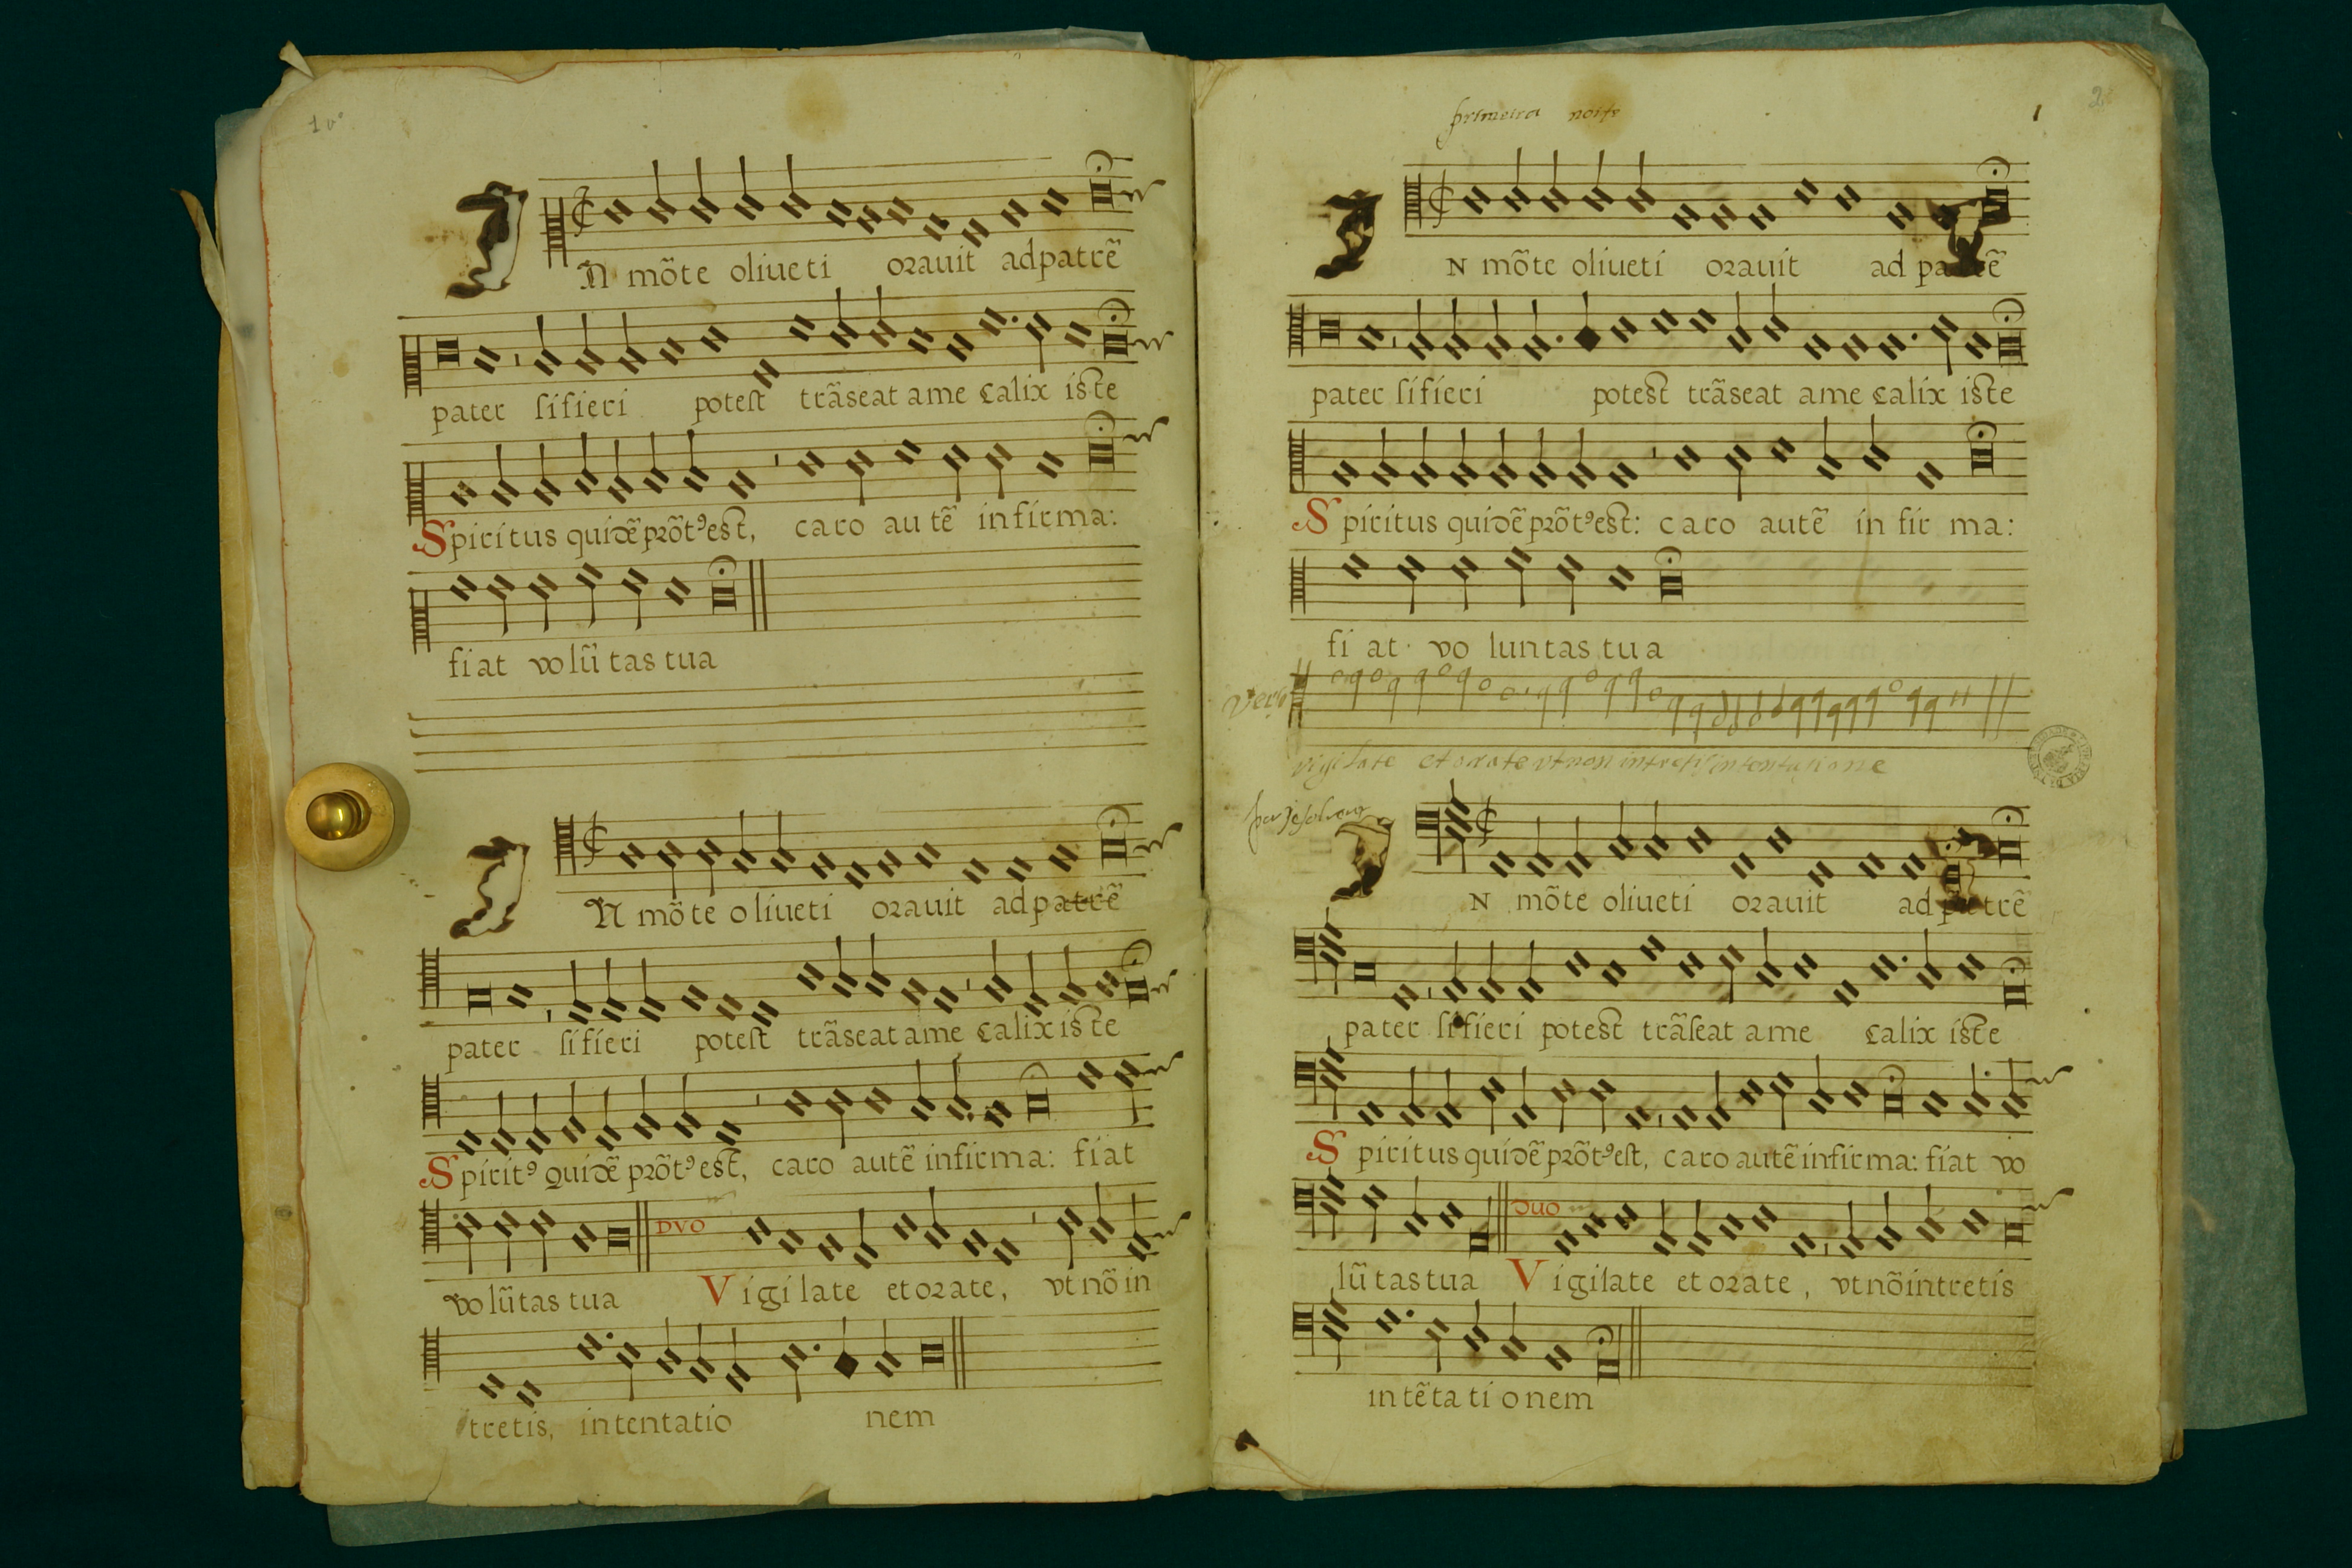 1 vº
IN mõte oliueti orauit ad patrẽ
pater si fieri potest trãseat a me calix iste
Spiritus quidẽ prõtꝰ est, caro autẽ infirma:
fiat volũtas tua
IN mõte oliueti orauit ad patrẽ
pater si fieri potest trãseat a me calix iste
Spiritꝰ quidẽ prõtꝰ est, caro autẽ infirma: fiat
DVO
volũtas tua Vigilate et orate, vt nõ in
tretis, in tentatio nem
primeira noite
1
2
IN mõte oliueti orauit ad patrẽ
pater si fieri potest trãseat a me calix iste
Spiritus quidẽ prõtꝰ est: caro autẽ infirma:
fiat voluntas tua
Verso
vigilate et orate vt non intretis in tentatione
IN mõte oliueti orauit ad patrẽ
pater si fieri potest trãseat a me calix iste
Spiritus quidẽ prõtꝰ est, caro autẽ infirma: fiat vo
DUO
lũtas tua Vigilate et orate, vt nõ intretis
in tẽtationem